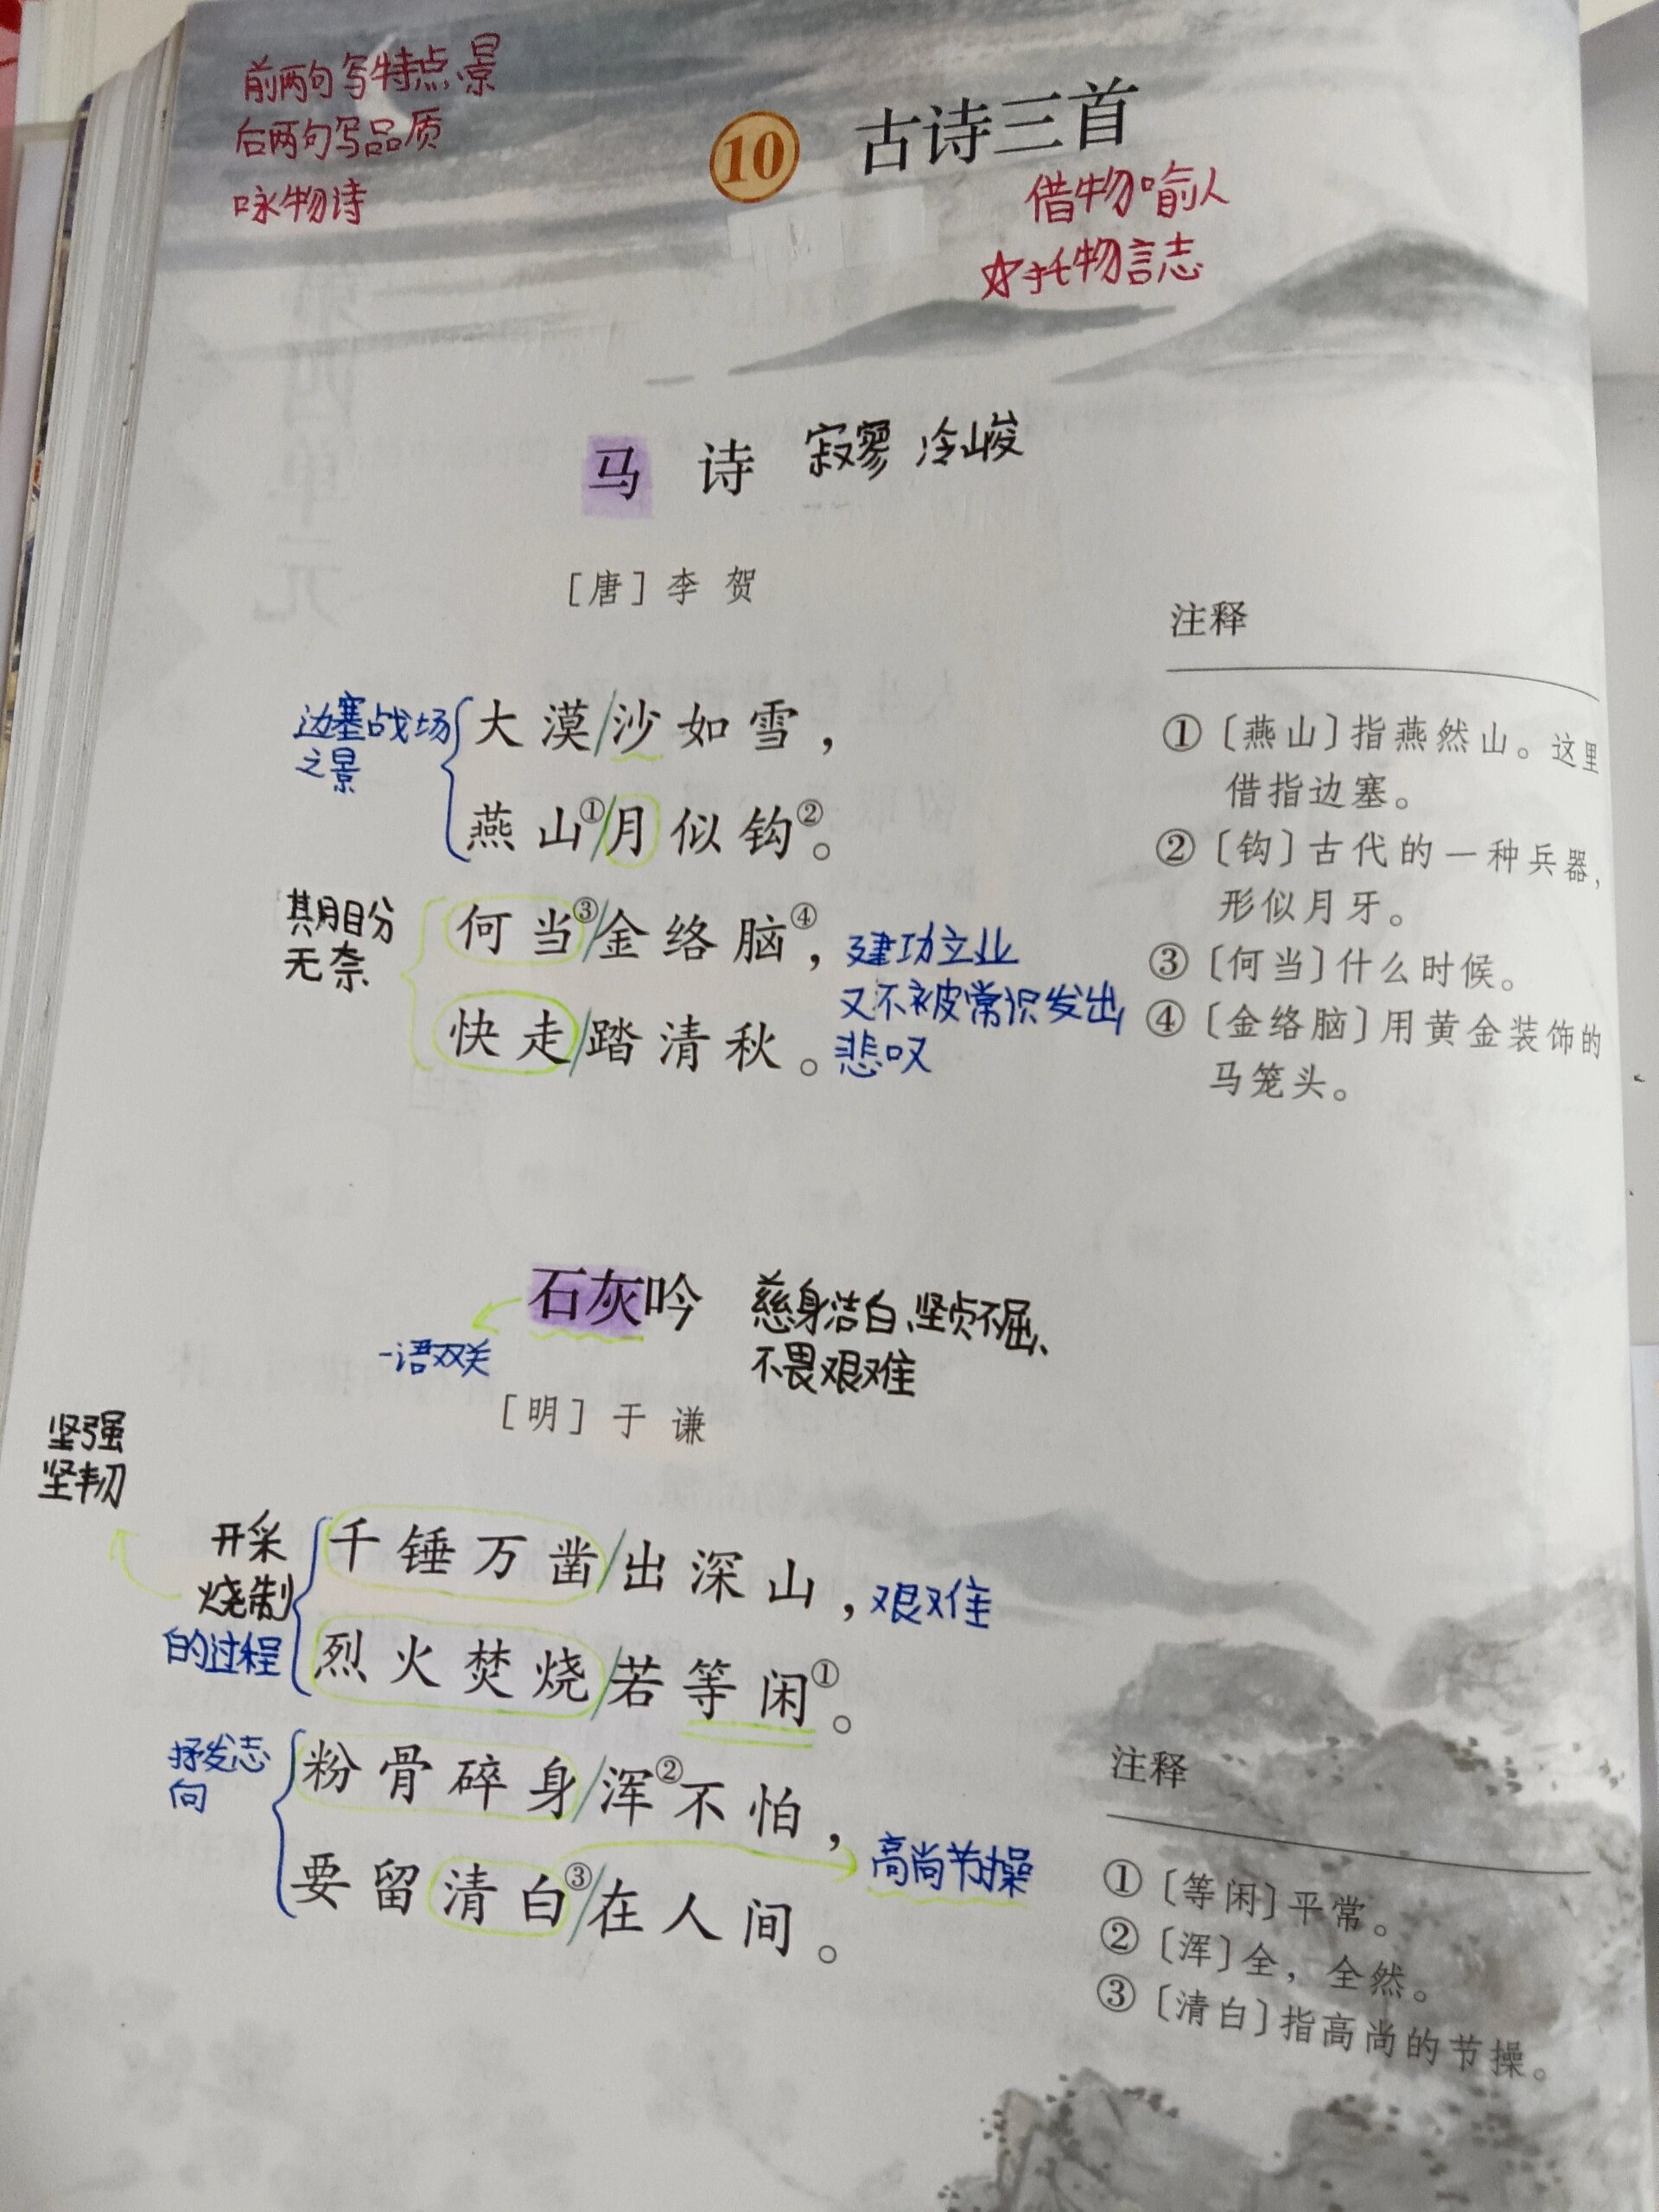 前两句写特点、景
后两句写品质
咏物诗
10 古诗三首
借物喻人
☆托物言志
马 诗 寂寥 冷峻
［唐］李 贺
边塞战场
之景
大漠/沙如雪，
燕山①/月似钩②。
期盼
无奈
何当③/金络脑④，
快走/踏清秋。
建功立业
又不被常识发出
悲叹
注释
①〔燕山〕指燕然山。这里
借指边塞。
②〔钩〕古代的一种兵器，
形似月牙。
③〔何当〕什么时候。
④〔金络脑〕用黄金装饰的
马笼头。
石灰吟
一语双关
慈身洁白、坚贞不屈、
不畏艰难
［明］于 谦
坚强
坚韧
开采
烧制
的过程
千锤万凿/出深山，艰难
烈火焚烧/若等闲①。
抒发志
向
粉骨碎身/浑②不怕，
要留清白③/在人间。
高尚节操
注释
①〔等闲〕平常。
②〔浑〕全，全然。
③〔清白〕指高尚的节操。